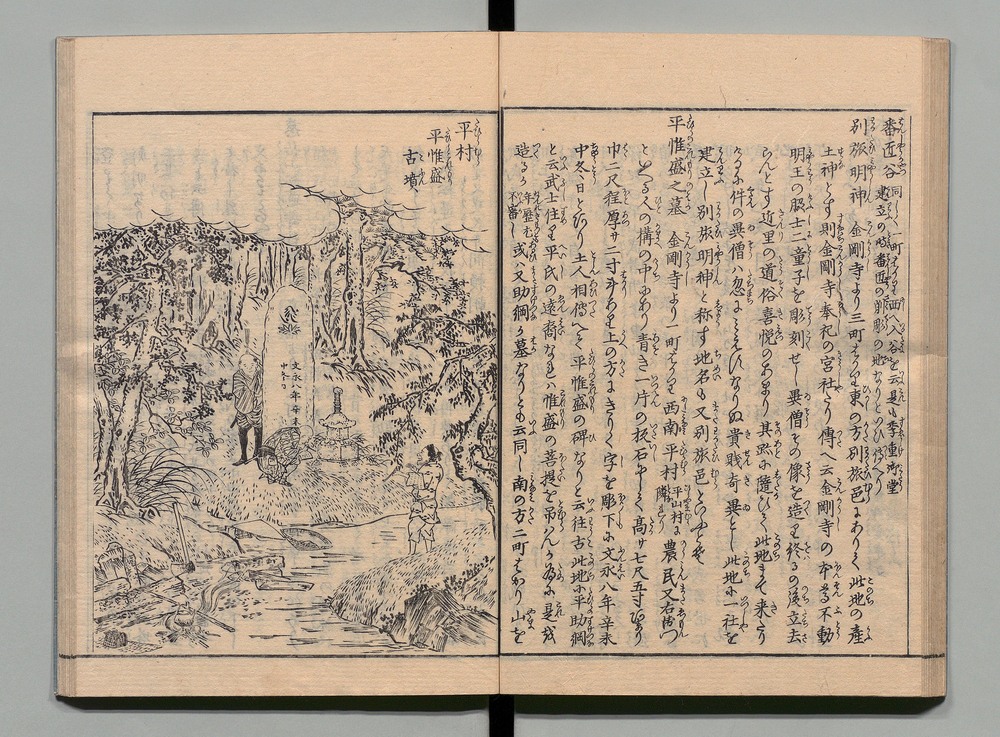 番匠谷 同しく一町をへて西入谷を云是も季重御堂
建立の時番匠の削彫の地なりとのひ傳へり
別旅明神 金剛寺より三町をへて東の方別旅邑にあり此地の産
土神とす則金剛寺奉祀の宮社たり傳へ云金剛寺の本尊不動
明王の脇士二童子を彫刻せし異僧その像を造り終るの後立去
らんとす近里の道俗喜悦のあまり其跡に隨ひて此地まて来たり
けるに件の異僧ハ忽にみえすなりぬ貴賤奇異とし此地に一社を
建立し別旅明神と称す地名も又別旅邑とのふとそ
平惟盛之墓 金剛寺より一町をへて西南平村 平山村に隣る 農民又右衛門
とゝる人の構の中にあり青き一片の板石にして高サ七尺五寸はかり
巾二尺程厚サ二寸斗あり上の方にきりく字を彫下に文永八年辛未
中冬日とあり土人相傳へて平惟盛の碑なりと云往古此地に平助綱
と云武士住り平氏の遠裔なれハ惟盛の菩提を吊ハんか為に是を
造るか 年歴も不審し 或ハ又助綱か墓なりとも云同し南の方二町はかり山を
平村
平惟盛
古墳
文永八年辛未
中冬日